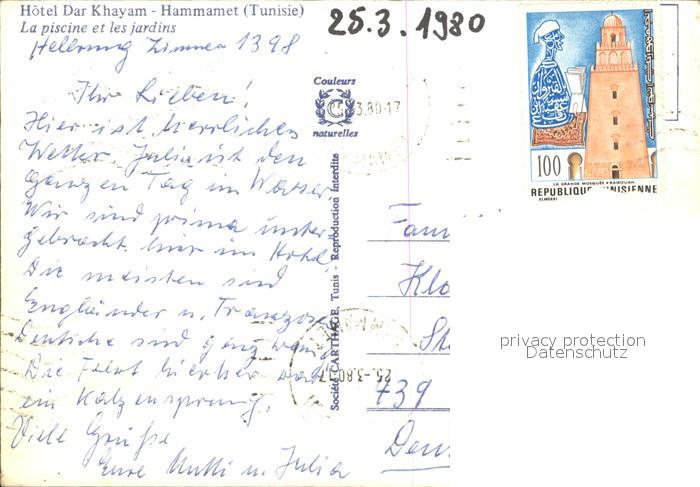 Hôtel Dar Khayam - Hammamet (Tunisie)
La piscine et les jardins
25.3.1980
Zimmer 1398
Ihr Lieben!
Hier ist herrliches
Wetter. Julia ist den
ganzen Tag im Wasser
Wir sind prima unter-
gebracht hier im Hotel
Die meisten sind
Engländer u. Franzosen
Deutsche sind ganz wenig
Die Fahrt hierher
ein Katzensprung.
Viele Grüße
Eure Mutti u. Julia
Couleurs
C
naturelles
Société CARTHAGE, Tunis - Reproduction Interdite
3.80-17
25.-3.80.17
100
LA GRANDE MOSQUÉE • KAIROUAN
REPUBLIQUE TUNISIENNE
ELMEKKI
Fami
Klo
St
739
Deu
privacy protection
Datenschutz